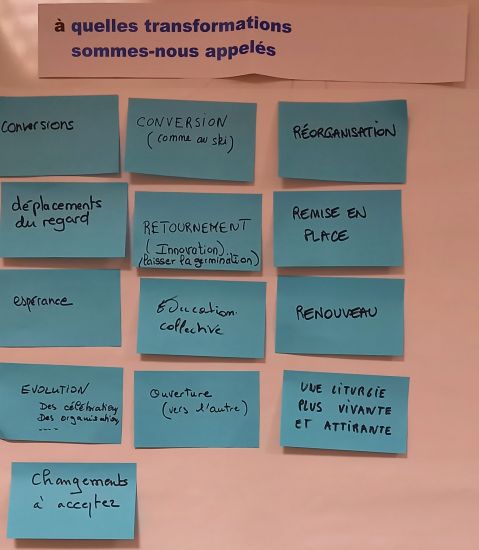 à quelles transformations
sommes-nous appelés
conversions
CONVERSION
(comme au ski)
RÉORGANISATION
déplacements
du regard
RETOURNEMENT
(Innovation)
(laisser la germination)
REMISE EN
PLACE
espérance
Éducation
collective
RENOUVEAU
EVOLUTION
Des célébration
Des organisation
....
Ouverture
(vers l'autre)
UNE LITURGIE
PLUS VIVANTE
ET ATTIRANTE
Changements
à accepter